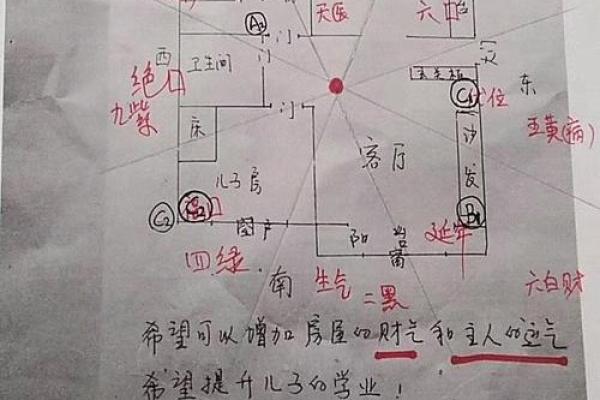 天医
六
A2
门
门
西
卫生间
门
灭
东
绝口
九紫
玄关柜
C1
伏位
五黄(病)
门
床
沙发
客厅
儿子房
C2
C2
窗户
阳台
窗
延年
B1
四绿
南
生气
二黑
六白财
希望可以增加房屋的财气和主人的运气
希望提升儿子的学业!